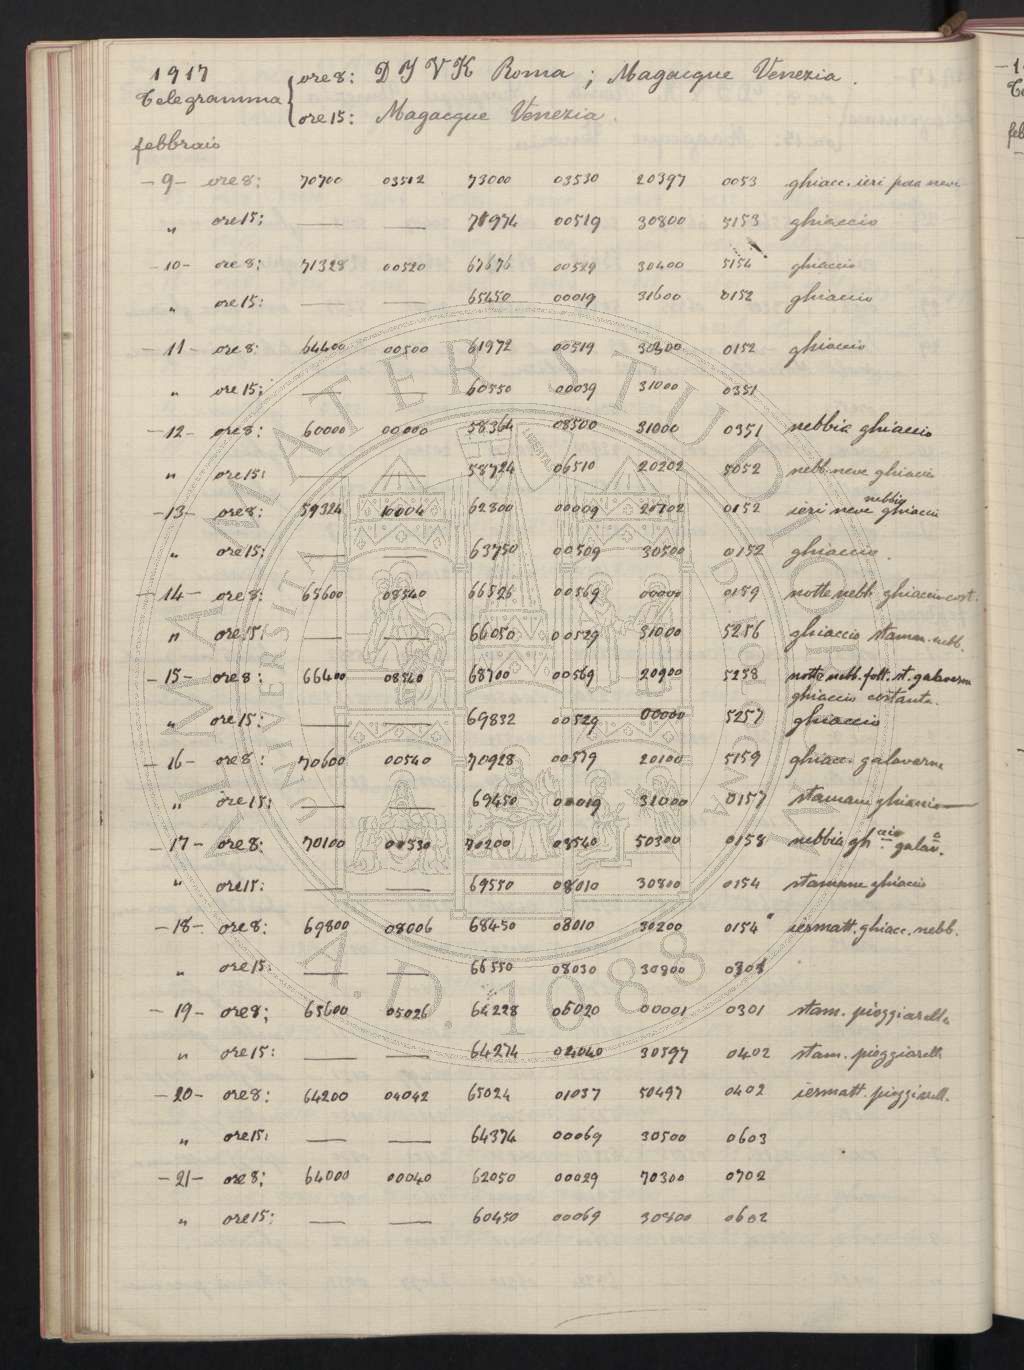 1917
Telegramma { ore 8: D I V K Roma ; Magacque Venezia.
ore 15: Magacque Venezia.
febbraio
- 9 - ore 8: 70700 03512 73000 03530 20397 0053 ghiacc. ieri poca neve
" ore 15: — — 71974 00519 30800 5153 ghiaccio
- 10 - ore 8: 71328 00520 67676 00529 30400 5154 ghiaccio
" ore 15: — — 65450 00019 31600 0152 ghiaccio
- 11 - ore 8: 64400 00500 61972 00519 30300 0152 ghiaccio
" ore 15: — — 60550 00039 31000 0351
- 12 - ore 8: 60000 00000 58364 08500 31000 0351 nebbia ghiaccio
" ore 15: — — 58724 06510 20202 5052 nebb. neve ghiaccio
- 13 - ore 8: 59324 10004 62800 00009 20702 0152 ieri neve nebbia ghiaccio
" ore 15: — — 63750 00509 30500 0152 ghiaccio.
- 14 - ore 8: 65600 08540 66526 00569 00000 0159 notte nebb. ghiaccio cost.
" ore 15: — — 66050 00529 31000 5256 ghiaccio staman. nebb.
- 15 - ore 8: 66400 08540 68700 00569 20900 5258 notte nebb. folt. st. galaverna
ghiaccio costante.
" ore 15: — — 69832 00529 00000 5257 ghiaccio
- 16 - ore 8: 70600 00540 70928 00579 20100 5159 ghiacc. galaverna
" ore 15: — — 69450 00019 31000 0157 stamani ghiaccio
- 17 - ore 8: 70100 00530 70200 08540 50300 0158 nebbia gh.ccio galav.a
" ore 15: — — 69550 08010 30800 0154 stamane ghiaccio
- 18 - ore 8: 69800 08006 68450 08010 30200 0154 iermatt. ghiacc. nebb.
" ore 15: — — 66550 08030 30800 0303
- 19 - ore 8: 65600 05026 64228 05020 00001 0301 stam. pioggiarella
" ore 15: — — 64274 02040 30597 0402 stam. pioggiarell.
- 20 - ore 8: 64200 04042 65024 01037 50497 0402 iermatt. pioggiarell.
" ore 15: — — 64374 00069 30500 0603
- 21 - ore 8: 64000 00040 62050 00029 70300 0702
" ore 15: — — 60450 00069 30800 0602
ALMA MATER STUDIORUM
UNIVERSITÀ
A.D. 1088